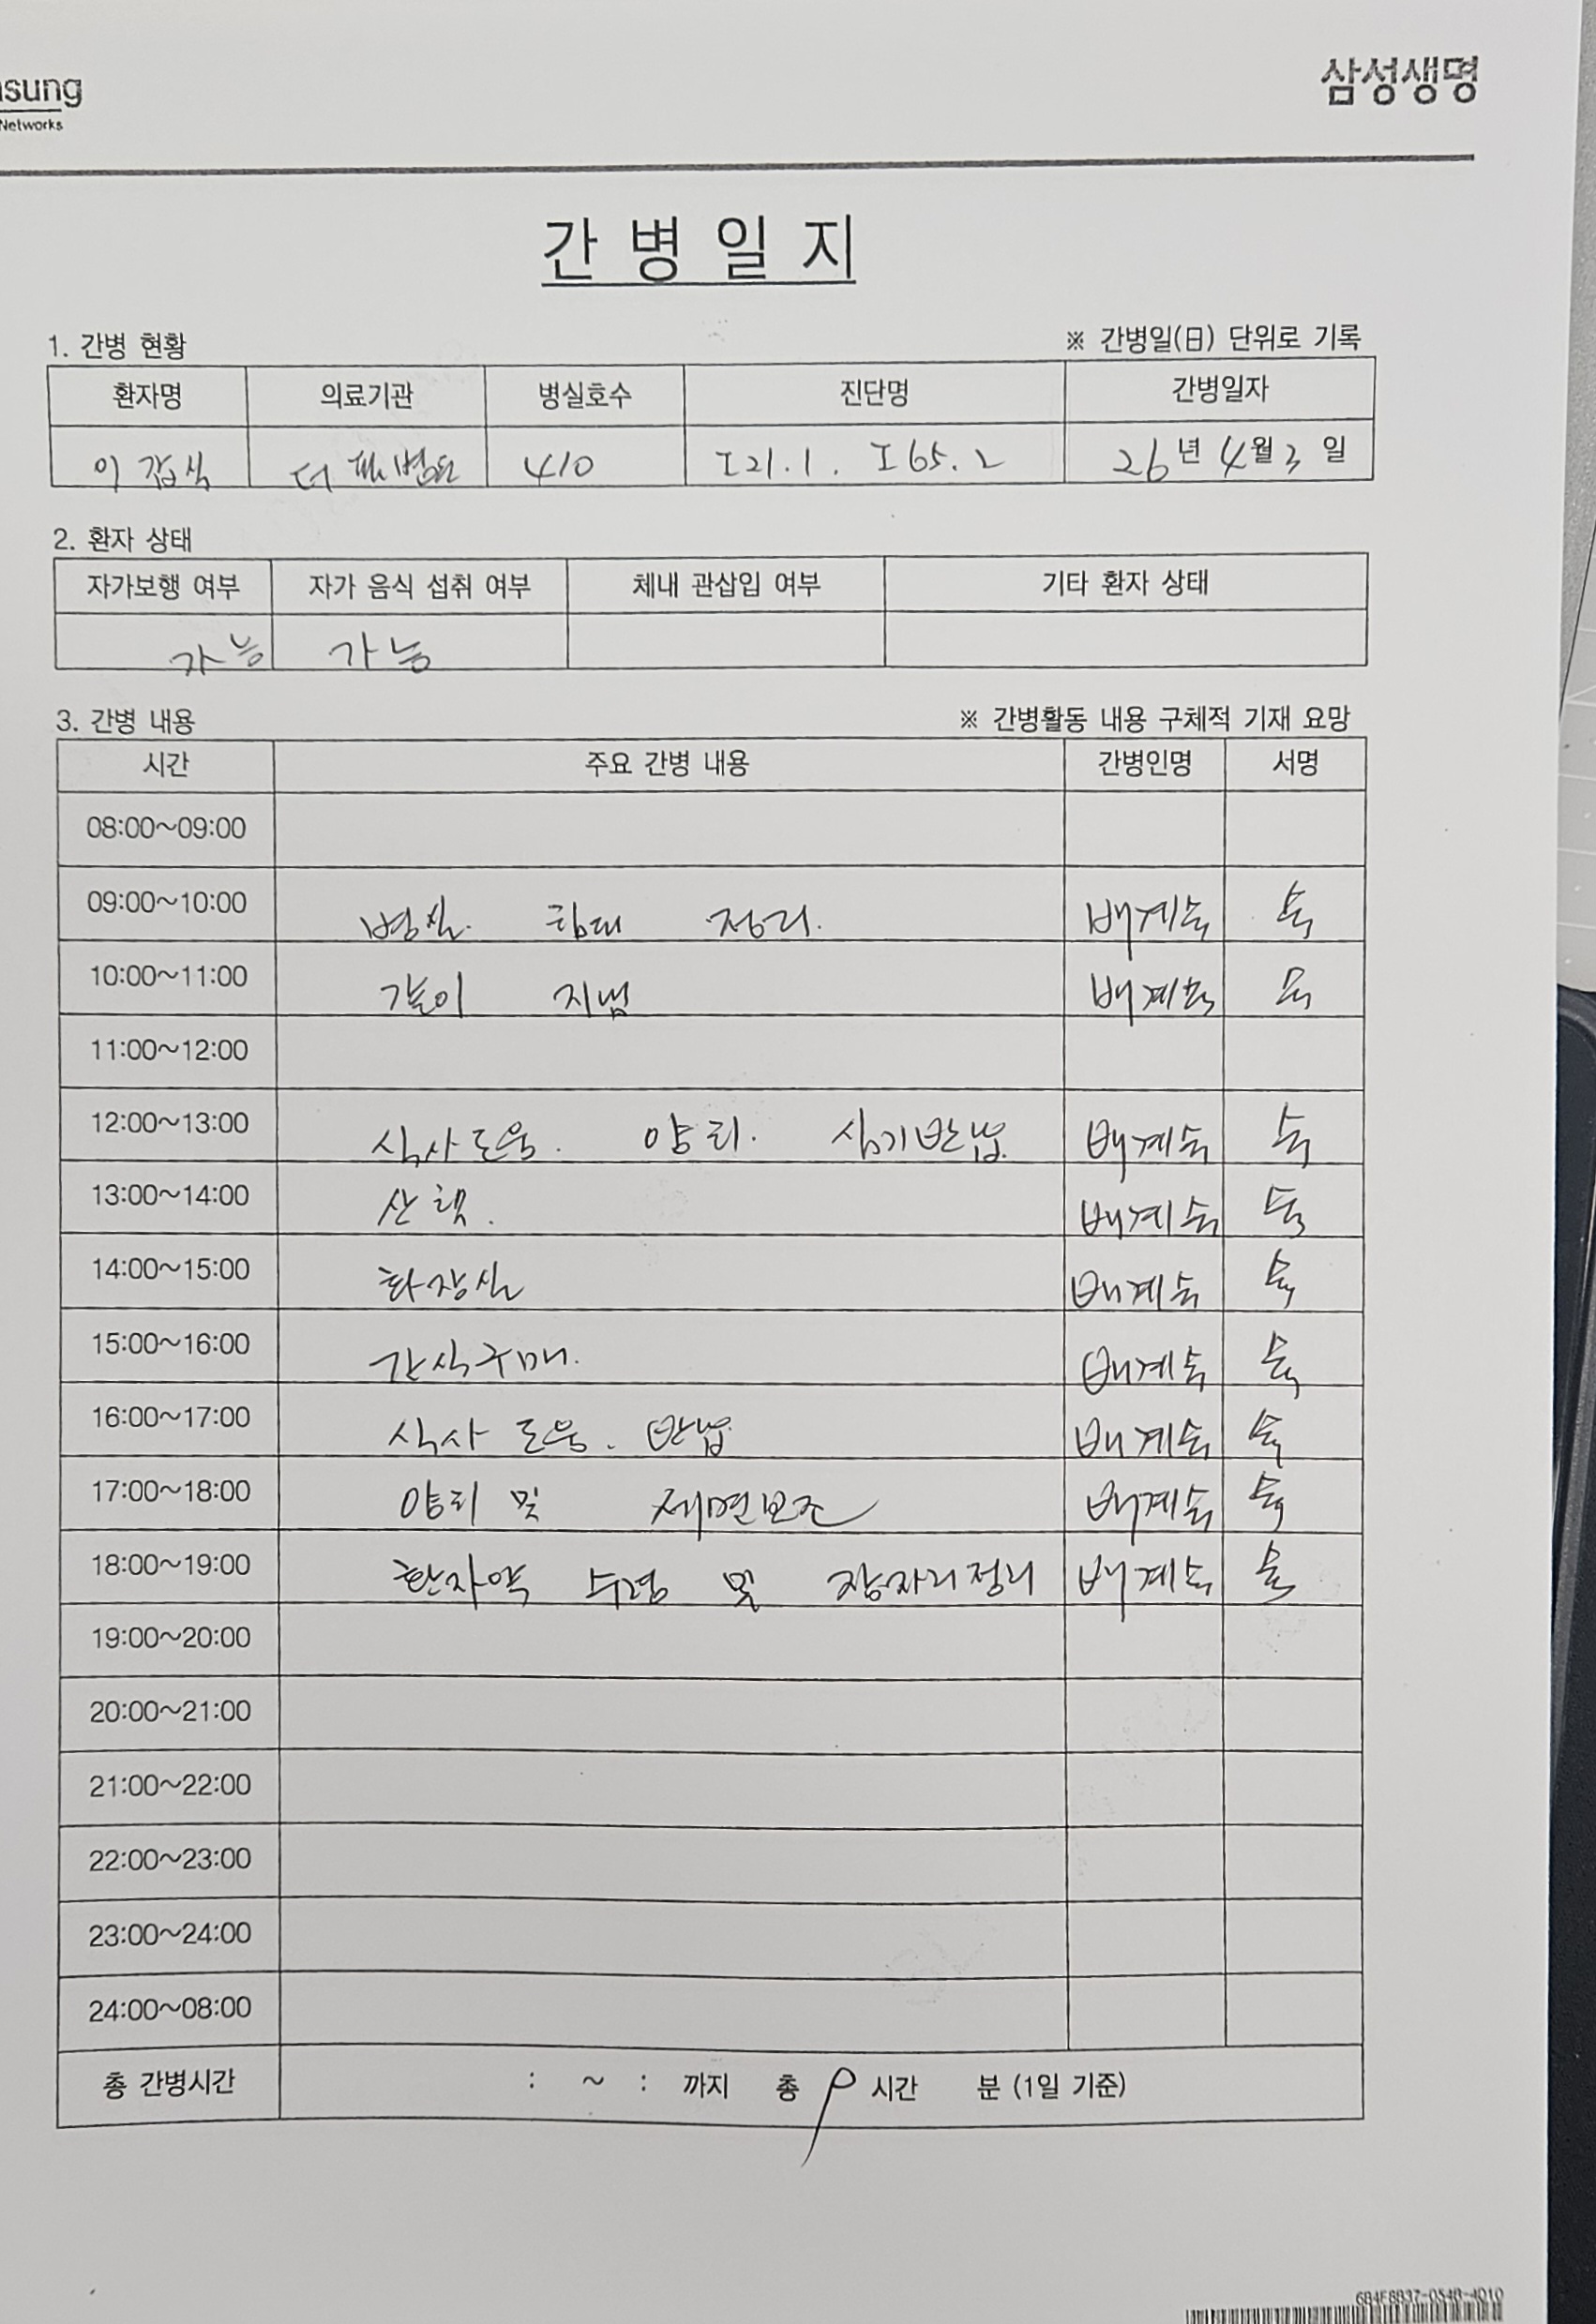 삼성생명
Networks
간 병 일 지
1. 간병 현황 ※ 간병일(日) 단위로 기록
환자명 의료기관 병실호수 진단명 간병일자
이갑식 410 I21.1. I65.2 26년 4월 3일
2. 환자 상태
자가보행 여부 자가 음식 섭취 여부 체내 관삽입 여부 기타 환자 상태
가능 가능
3. 간병 내용 ※ 간병활동 내용 구체적 기재 요망
시간 주요 간병 내용 간병인명 서명
08:00~09:00
09:00~10:00 병실 침대 정리. 배계숙 숙
10:00~11:00 같이 지냄 배계숙 숙
11:00~12:00
12:00~13:00 식사도움. 양치. 식기반납. 배계숙 숙
13:00~14:00 산책. 배계숙 숙
14:00~15:00 화장실 배계숙 숙
15:00~16:00 간식구매. 배계숙 숙
16:00~17:00 식사 도움. 반납 배계숙 숙
17:00~18:00 양치 및 세면보조 배계숙 숙
18:00~19:00 환자약 수령 및 잠자리정리 배계숙 숙
19:00~20:00
20:00~21:00
21:00~22:00
22:00~23:00
23:00~24:00
24:00~08:00
총 간병시간 : ~ : 까지 총 9 시간 분 (1일 기준)